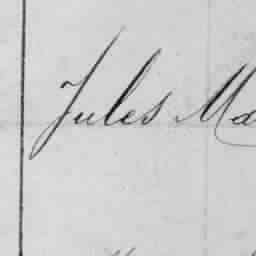 Jules Ma